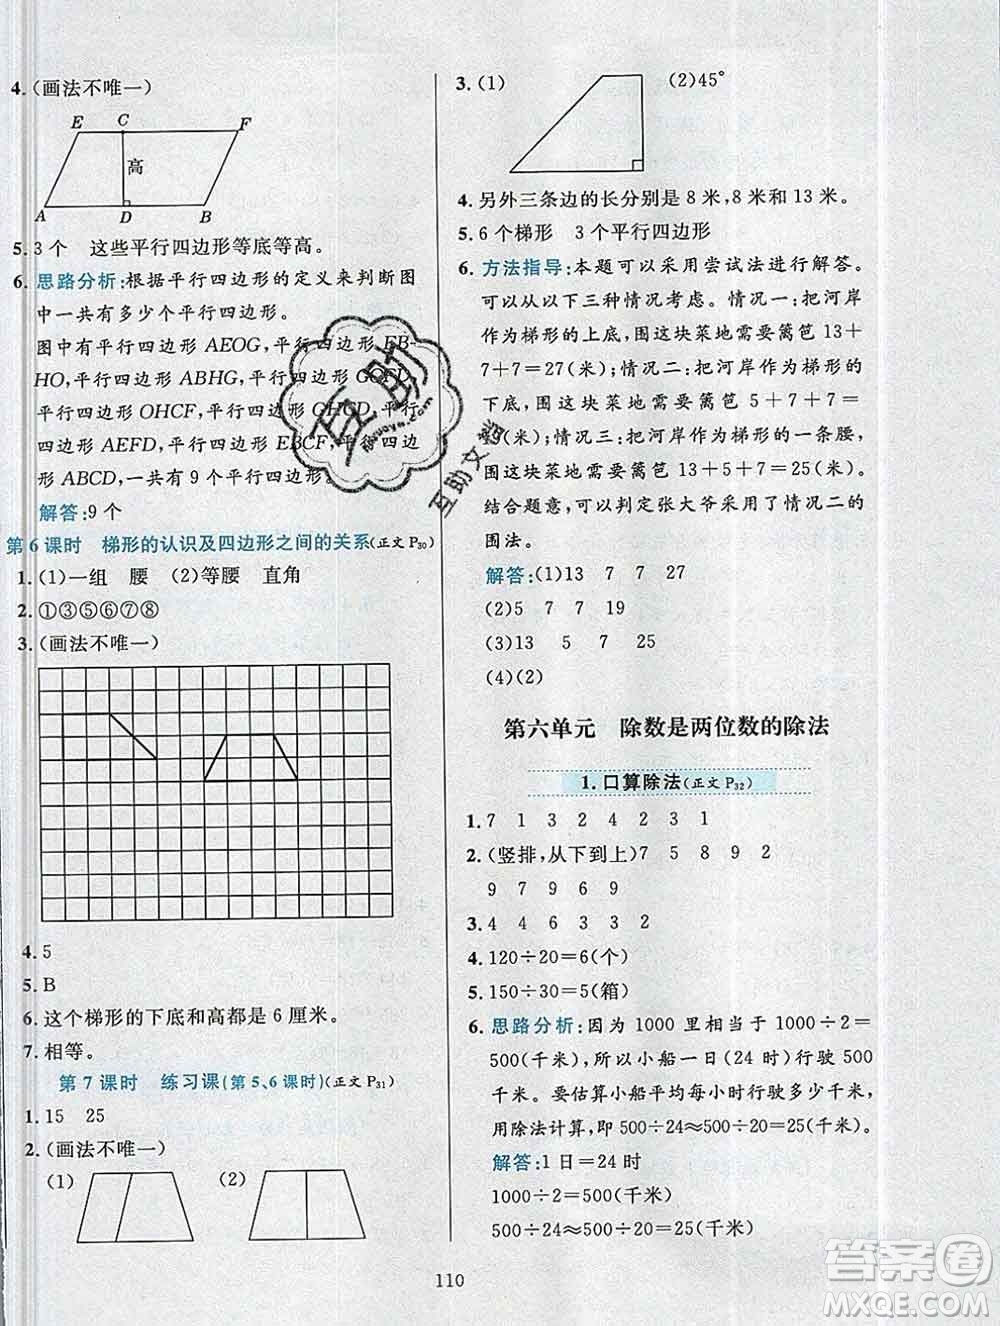 4. (画法不唯一)
E C F
高
A D B
5. 3 个 这些平行四边形等底等高。
6. 思路分析:根据平行四边形的定义来判断图
中一共有多少个平行四边形。
图中有平行四边形 AEOG,平行四边形 EB-
HO,平行四边形 ABHG,平行四边形 GOFD,
平行四边形 OHCF,平行四边形 GHCD,平行
四边形 AEFD,平行四边形 EBCF,平行四边
形 ABCD,一共有 9 个平行四边形。
解答:9 个
第 6 课时 梯形的认识及四边形之间的关系(正文 P30)
1. (1)一组 腰 (2)等腰 直角
2. ①③⑤⑥⑦⑧
3. (画法不唯一)
4. 5
5. B
6. 这个梯形的下底和高都是 6 厘米。
7. 相等。
第 7 课时 练习课(第 5、6 课时)(正文 P31)
1. 15 25
2. (画法不唯一)
(1) (2)
3. (1) (2)45°
4. 另外三条边的长分别是 8 米,8 米和 13 米。
5. 6 个梯形 3 个平行四边形
6. 方法指导:本题可以采用尝试法进行解答。
可以从以下三种情况考虑。情况一:把河岸
作为梯形的上底,围这块菜地需要篱笆 13+
7+7=27(米);情况二:把河岸作为梯形的
下底,围这块菜地需要篱笆 5+7+7=
19(米);情况三:把河岸作为梯形的一条腰,
围这块菜地需要篱笆 13+5+7=25(米)。
结合题意,可以判定张大爷采用情况二的
围法。
解答:(1)13 7 7 27
(2)5 7 7 19
(3)13 5 7 25
(4)(2)
第六单元 除数是两位数的除法
1. 口算除法(正文 P32)
1. 7 1 3 2 4 2 3 1
2. (竖排,从下到上)7 5 8 9 2
9 7 9 6 9
3. 4 4 6 3 3 2
4. 120÷20=6(个)
5. 150÷30=5(箱)
6. 思路分析:因为 1000 里相当于 1000÷2=
500(千米),所以小船一日(24 时)行驶 500
千米。要估算小船平均每小时行驶多少千米,
用除法计算,即 500÷24≈500÷20=25(千米)。
解答:1 日=24 时
1000÷2=500(千米)
500÷24≈500÷20=25(千米)
110
互助
互助文档
答案圈
MXQE.COM